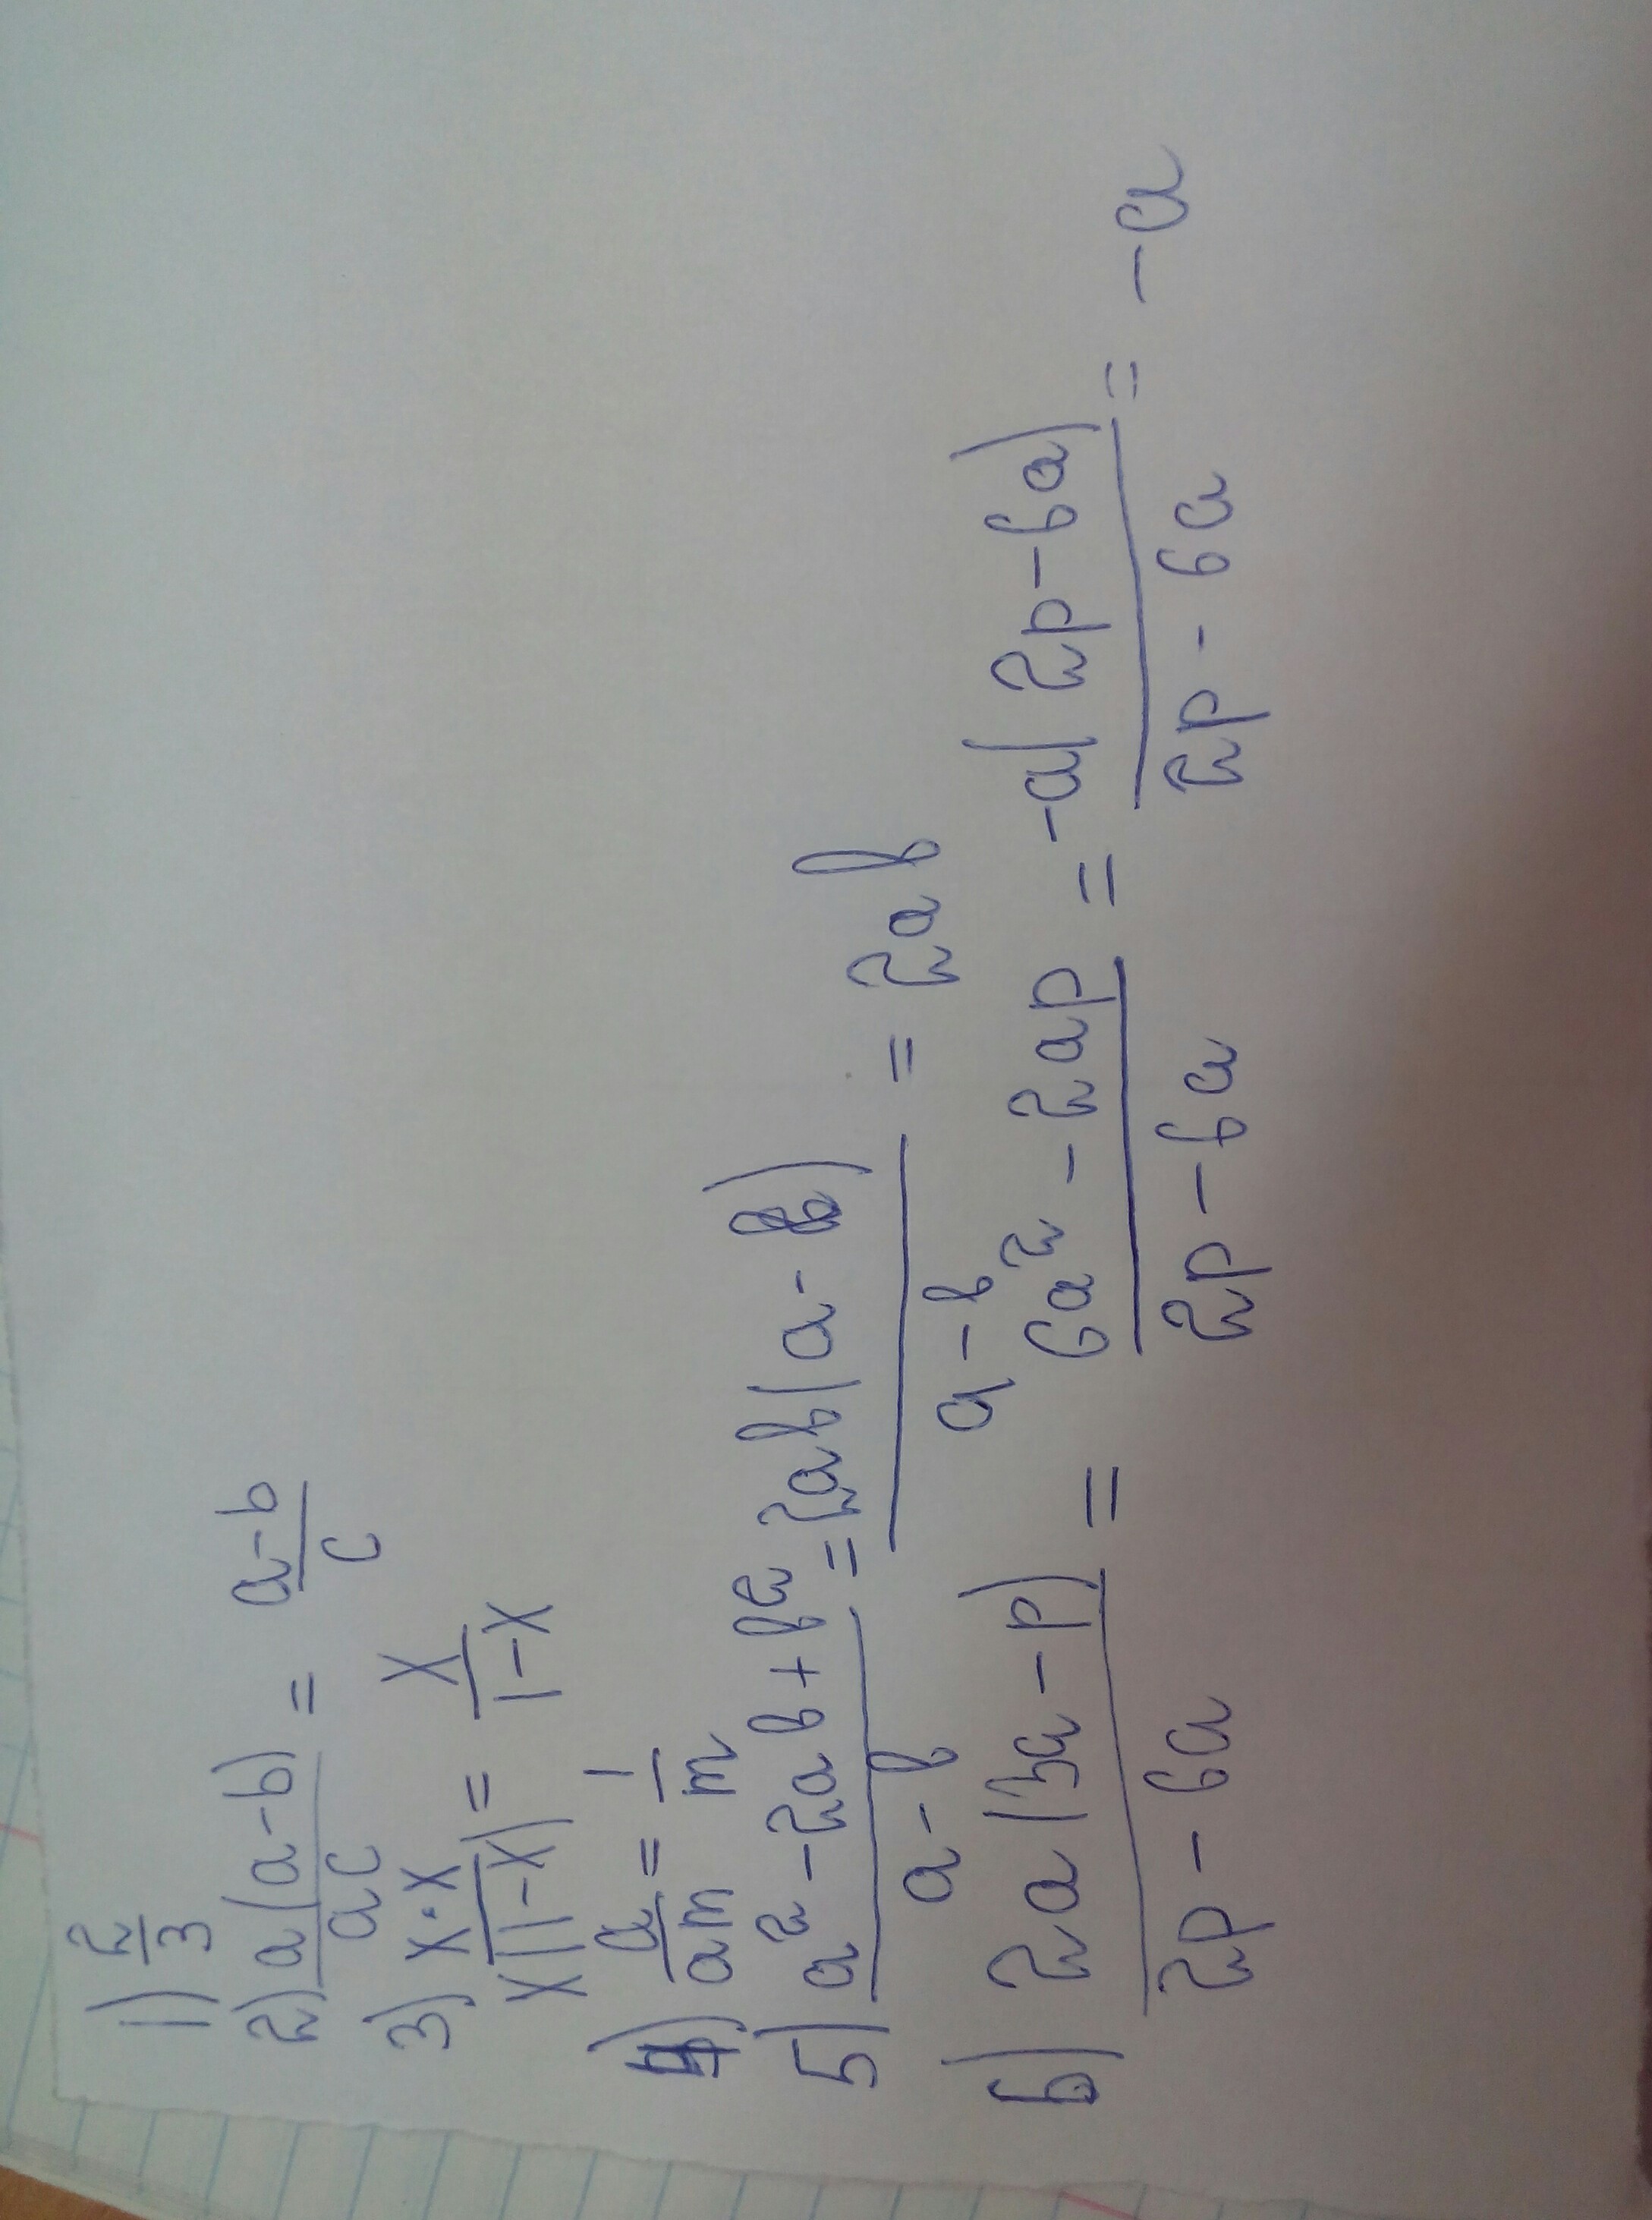 1) 2/3
2) a(a-b)/ac = a-b/c
3) x·x/x(1-x) = x/1-x
4) a/am = 1/m
5) a²-2ab+b²/a-b = 2ab(a-b)/a-b = 2ab
6) 2a(3a-p)/2p-6a = 6a²-2ap/2p-6a = -a(2p-6a)/2p-6a = -a